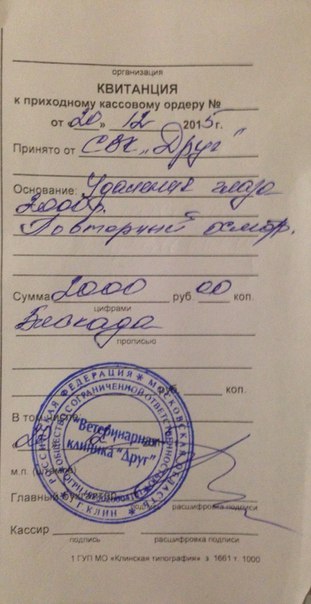 организация
КВИТАНЦИЯ
к приходному кассовому ордеру №
от "20" 12 2015 г.
Принято от СВК "Друг"
Основание: Удаление глаза
2000р.
Повторный осмотр.
Сумма 2000 руб. 00 коп.
цифрами
прописью
руб. коп.
В том числе
м.п. (штампа)
РОССИЙСКАЯ ФЕДЕРАЦИЯ * МОСКОВСКАЯ ОБЛАСТЬ * Г.КЛИН *
ОБЩЕСТВО С ОГРАНИЧЕННОЙ ОТВЕТСТВЕННОСТЬЮ
"Ветеринарная
клиника "Друг"
Главный бухгалтер
подпись расшифровка подписи
Кассир
подпись расшифровка подписи
1 ГУП МО «Клинская типография» з 1661 т. 1000